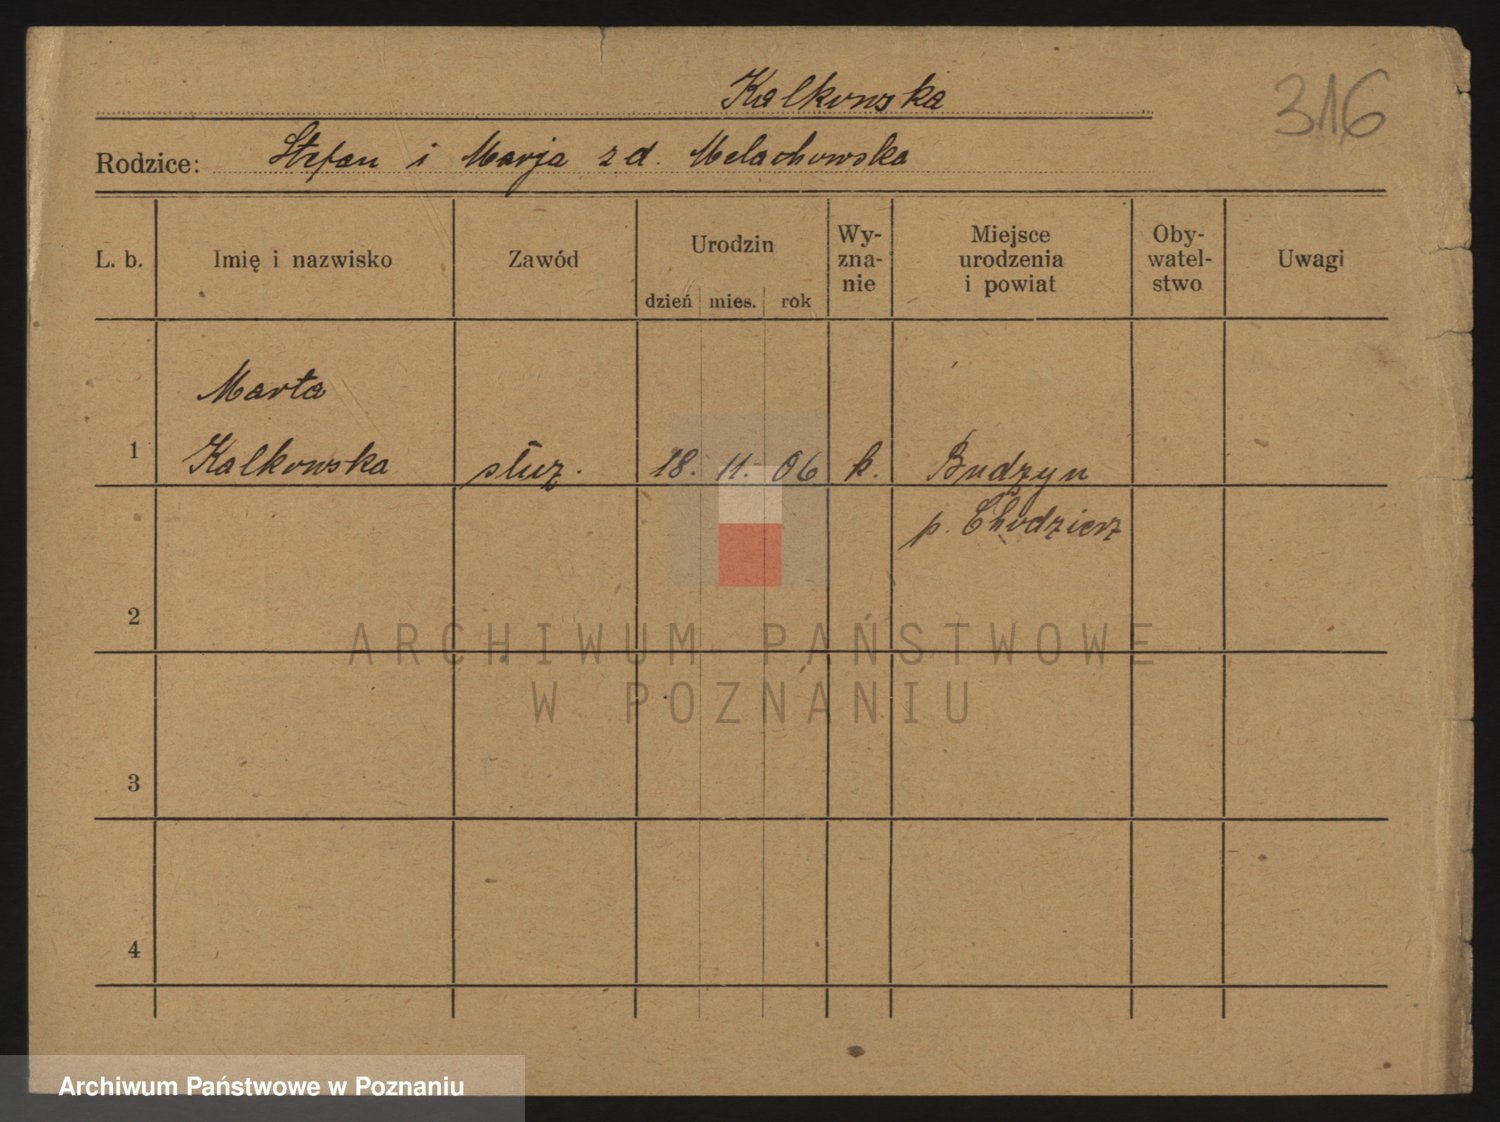 Kalkowska
316
Rodzice: Stefan i Marja z d. Melachowska
L. b.
Imię i nazwisko
Zawód
Urodzin
dzień mies. rok
Wy-
zna-
nie
Miejsce
urodzenia
i powiat
Oby-
watel-
stwo
Uwagi
1
Marta
Kalkowska
służ.
18. 11. 06
k.
Budzyn
p. Chodzierz
2
3
4
ARCHIWUM PAŃSTWOWE
W POZNANIU
Archiwum Państwowe w Poznaniu